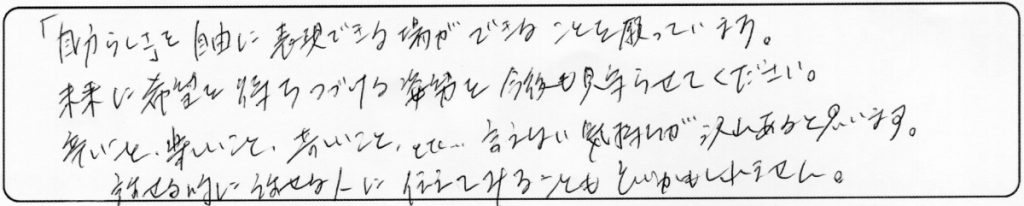 「自分らしさ」を自由に表現できる場ができることを願っています。
未来に希望を持ちつづける姿勢を今後も見守らせてください。
辛いこと、楽しいこと、苦しいこと、etc… 言えない気持ちが沢山あると思います。
話せる時に話せる人に伝えてみることもいいかもしれません。